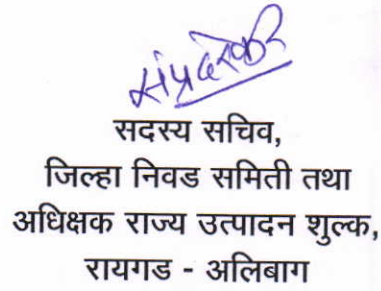 सदस्य सचिव,
जिल्हा निवड समिती तथा
अधिक्षक राज्य उत्पादन शुल्क,
रायगड - अलिबाग